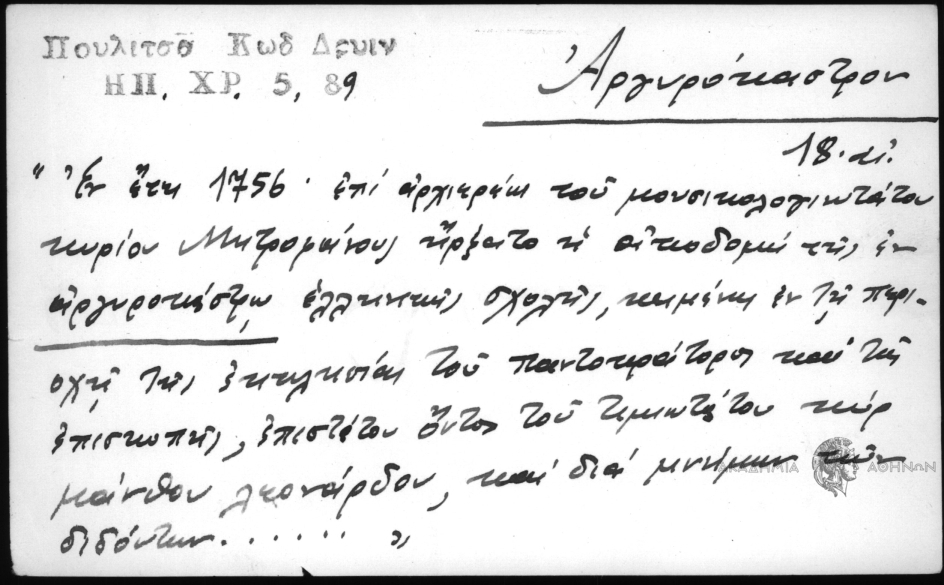 Πουλιτσᾶ Κωδ Δρυιν
ΗΠ. ΧΡ. 5, 89
Ἀργυρόκαστρον
18. αἰ.
"Ἐν ἔτει 1756. ἐπί ἀρχιερέως τοῦ μουσικολογιωτάτου
κυρίου Μητροφάνους ἤρξατο ἡ οἰκοδομή τῆς ἐν
ἀργυροκάστρῳ ἑλληνικῆς σχολῆς, κειμένη ἐν τῇ περι-
οχῇ τῆς ἐκκλησίας τοῦ παντοκράτορος καί τῆς
ἐπισκοπῆς, ἐπιστάτου ὄντος τοῦ τιμιωτάτου κύρ
μάνθου λεονάρδου, καί διά μνήμην τῶν
διδόντων...... "
ΑΚΑΔΗΜΙΑ ΑΘΗΝΩΝ